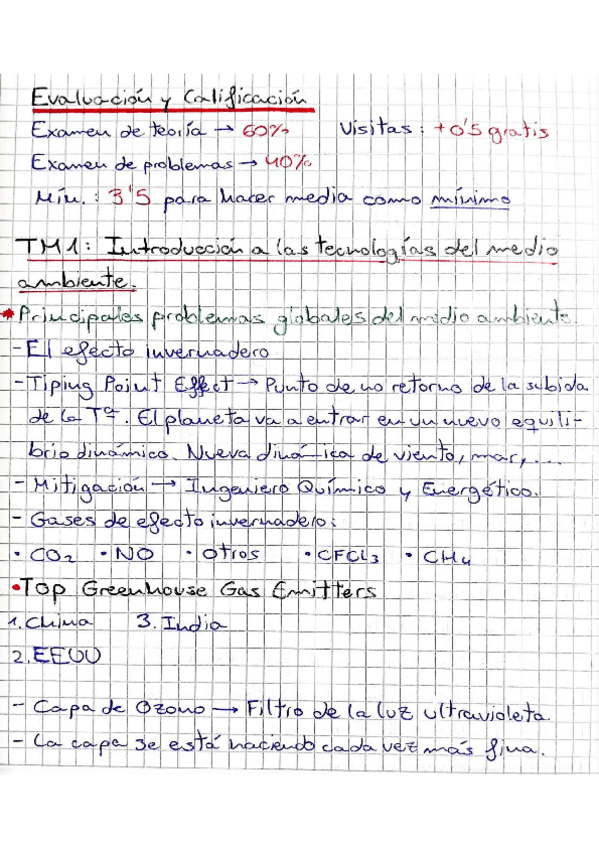 Evaluación y Calificación
Examen de teoría → 60% Visitas: +0'5 gratis
Examen de problemas → 40%
Mín.: 3'5 para hacer media como mínimo
TM1: Introducción a las tecnologías del medio
ambiente.
* Principales problemas globales del medio ambiente.
- El efecto invernadero
- Tiping Point Effect → Punto de no retorno de la subida
de la Tª. El planeta va a entrar en un nuevo equili-
brio dinámico. Nueva dinámica de viento, mar,...
- Mitigación → Ingeniero Químico y Energético.
- Gases de efecto invernadero:
• CO₂ • NO • Otros • CFCl₃ • CH₄
• Top Greenhouse Gas Emitters
1. China 3. India
2. EEUU
- Capa de Ozono → Filtro de la luz ultravioleta.
- La capa se está haciendo cada vez más fina.